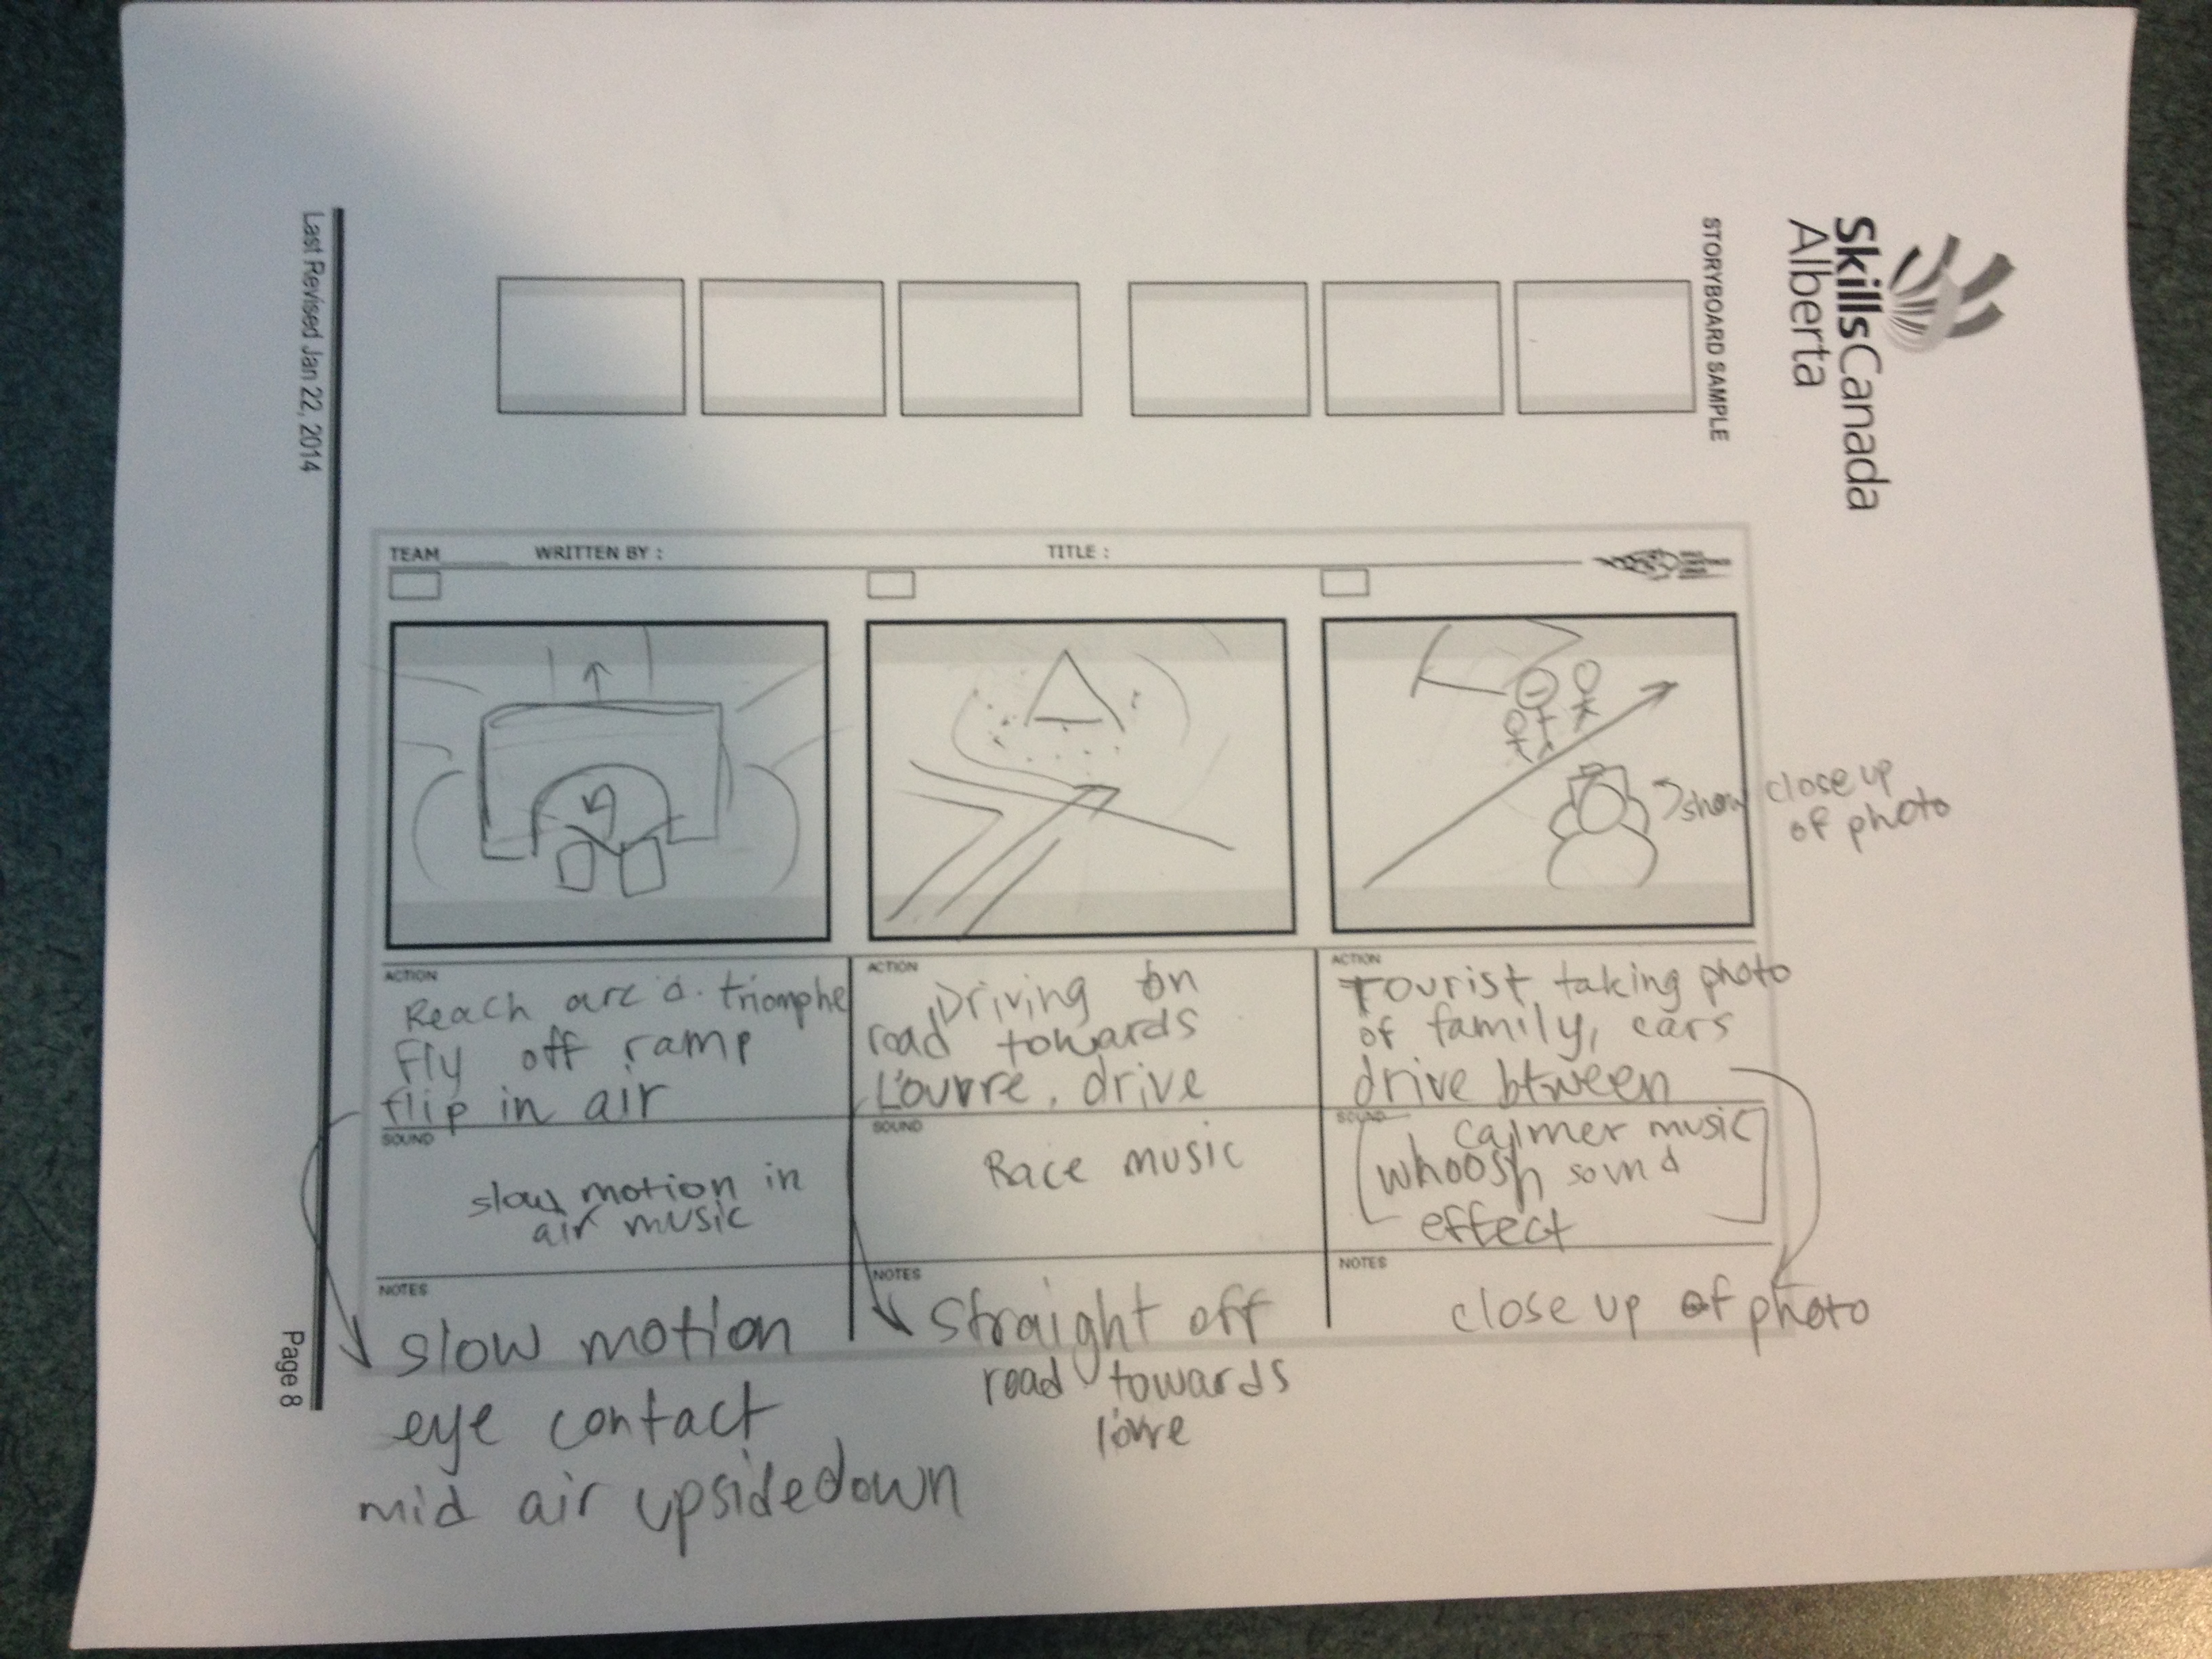 SkillsCanada
Alberta
STORYBOARD SAMPLE
TEAM WRITTEN BY : TITLE :
show close up
of photo
ACTION
Reach arc d. triomphe
fly off ramp
flip in air
SOUND
slow motion in
air music
NOTES
slow motion
eye contact
mid air upsidedown
ACTION
Driving on
road towards
L'ouvre, drive
SOUND
Race music
NOTES
straight off
road towards
l'ovre
ACTION
Tourist taking photo
of family, cars
drive btween
SOUND
calmer music
whoosh sound
effect
NOTES
close up of photo
Last Revised Jan 22, 2014
Page 8